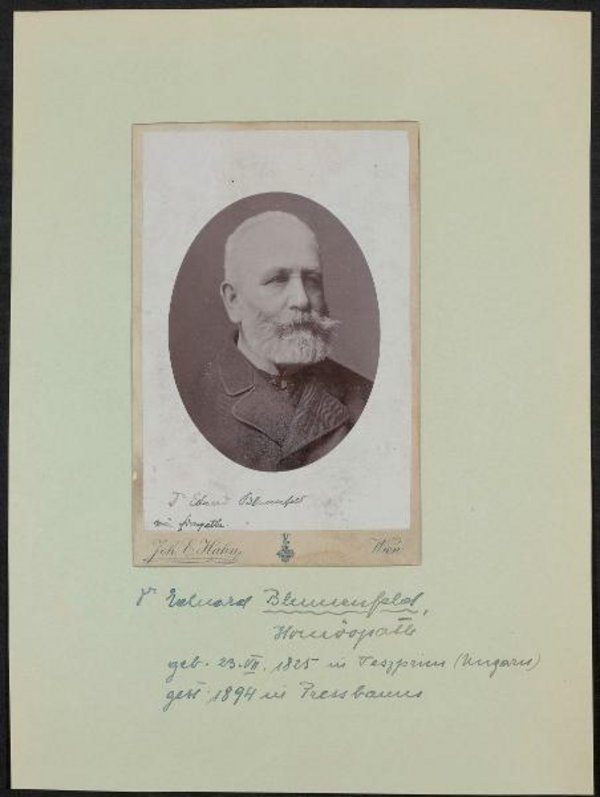 Dr Eduard Blumenfeld
Joh. E. Hahn, Wien
Dr Eduard Blumenfeld,
Homöopath
geb. 23. VII. 1825 in Teszprim (Ungarn)
gest 1894 in Pressbaum